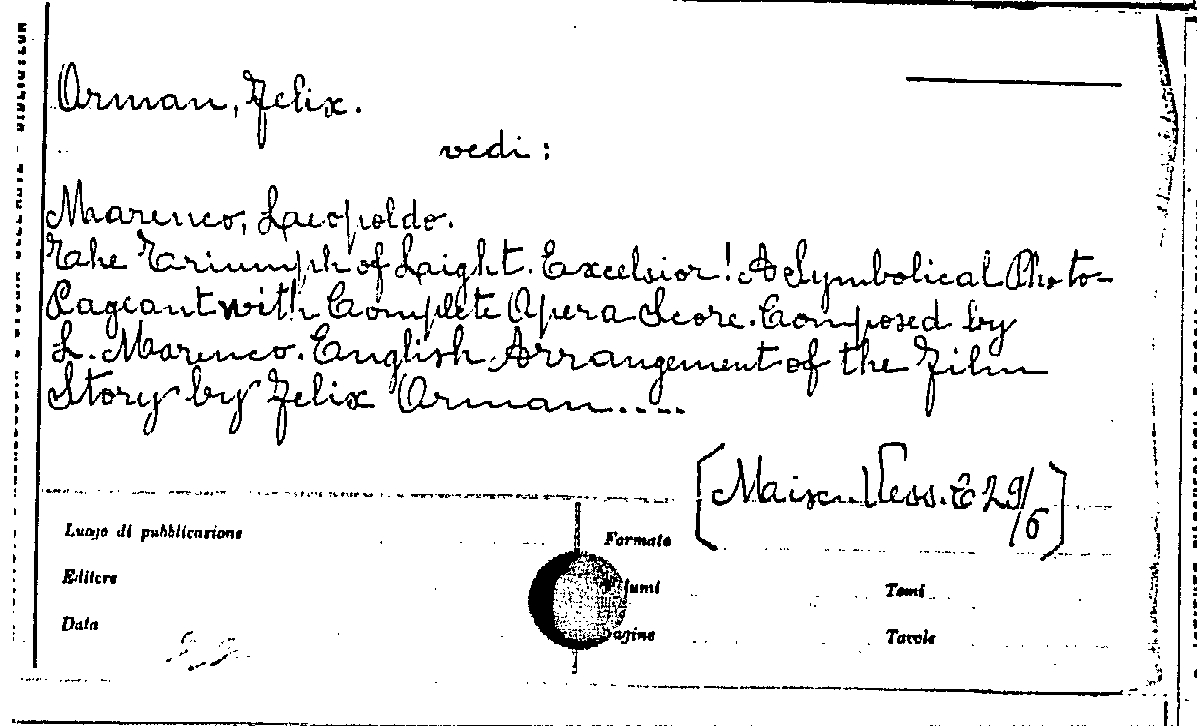 Orman, Felix.
vedi:
Marenco, Leopoldo.
The Triumph of Light. Excelsior! A Symbolical Photo-
Pageant with Complete Opera Score. Composed by
L. Marenco. English Arrangement of the Film
Story by Felix Orman.....
[Misc. Vess. C 29/6]
Luogo di pubblicazione
Formato
Editore
Volumi
Tomi
Data
Pagine
Tavole